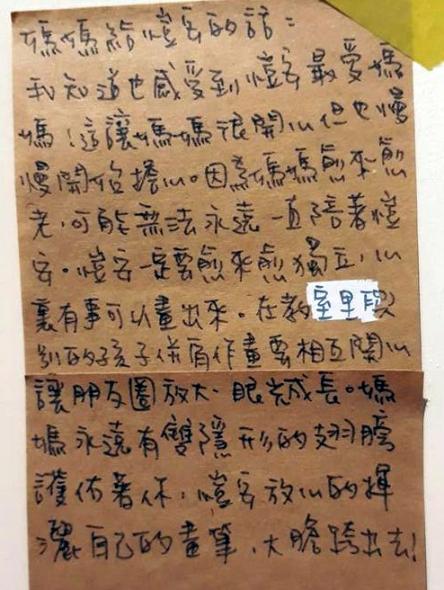 媽媽給愷宏的話：
我知道也感受到愷宏最愛媽
媽！這讓媽媽很開心但也慢
慢開始擔心。因為媽媽愈來愈
老，可能無法永遠一直陪著愷
宏。愷宏一定要愈來愈獨立，心
裏有事可以畫出來。在教室里與
別的孩子併肩作畫要相互關心
讓朋友圈放大，眼光成長。媽
媽永遠有雙隱形的翅膀
護佑著你，愷宏放心的揮
灑自己的畫筆，大膽跨出去！